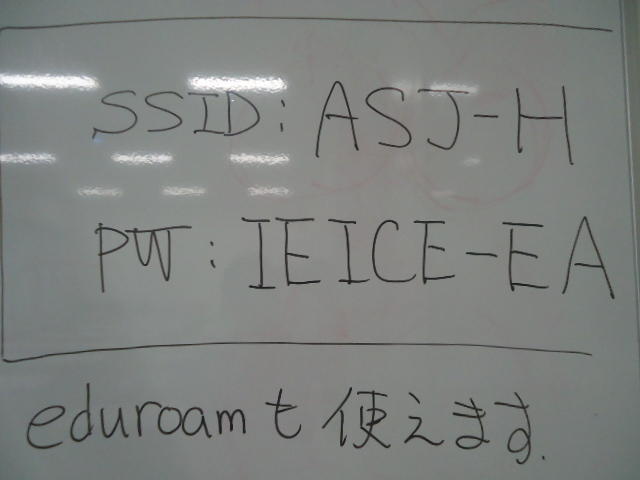 SSID: ASJ-H
PW: IEICE-EA
eduroamも使えます.